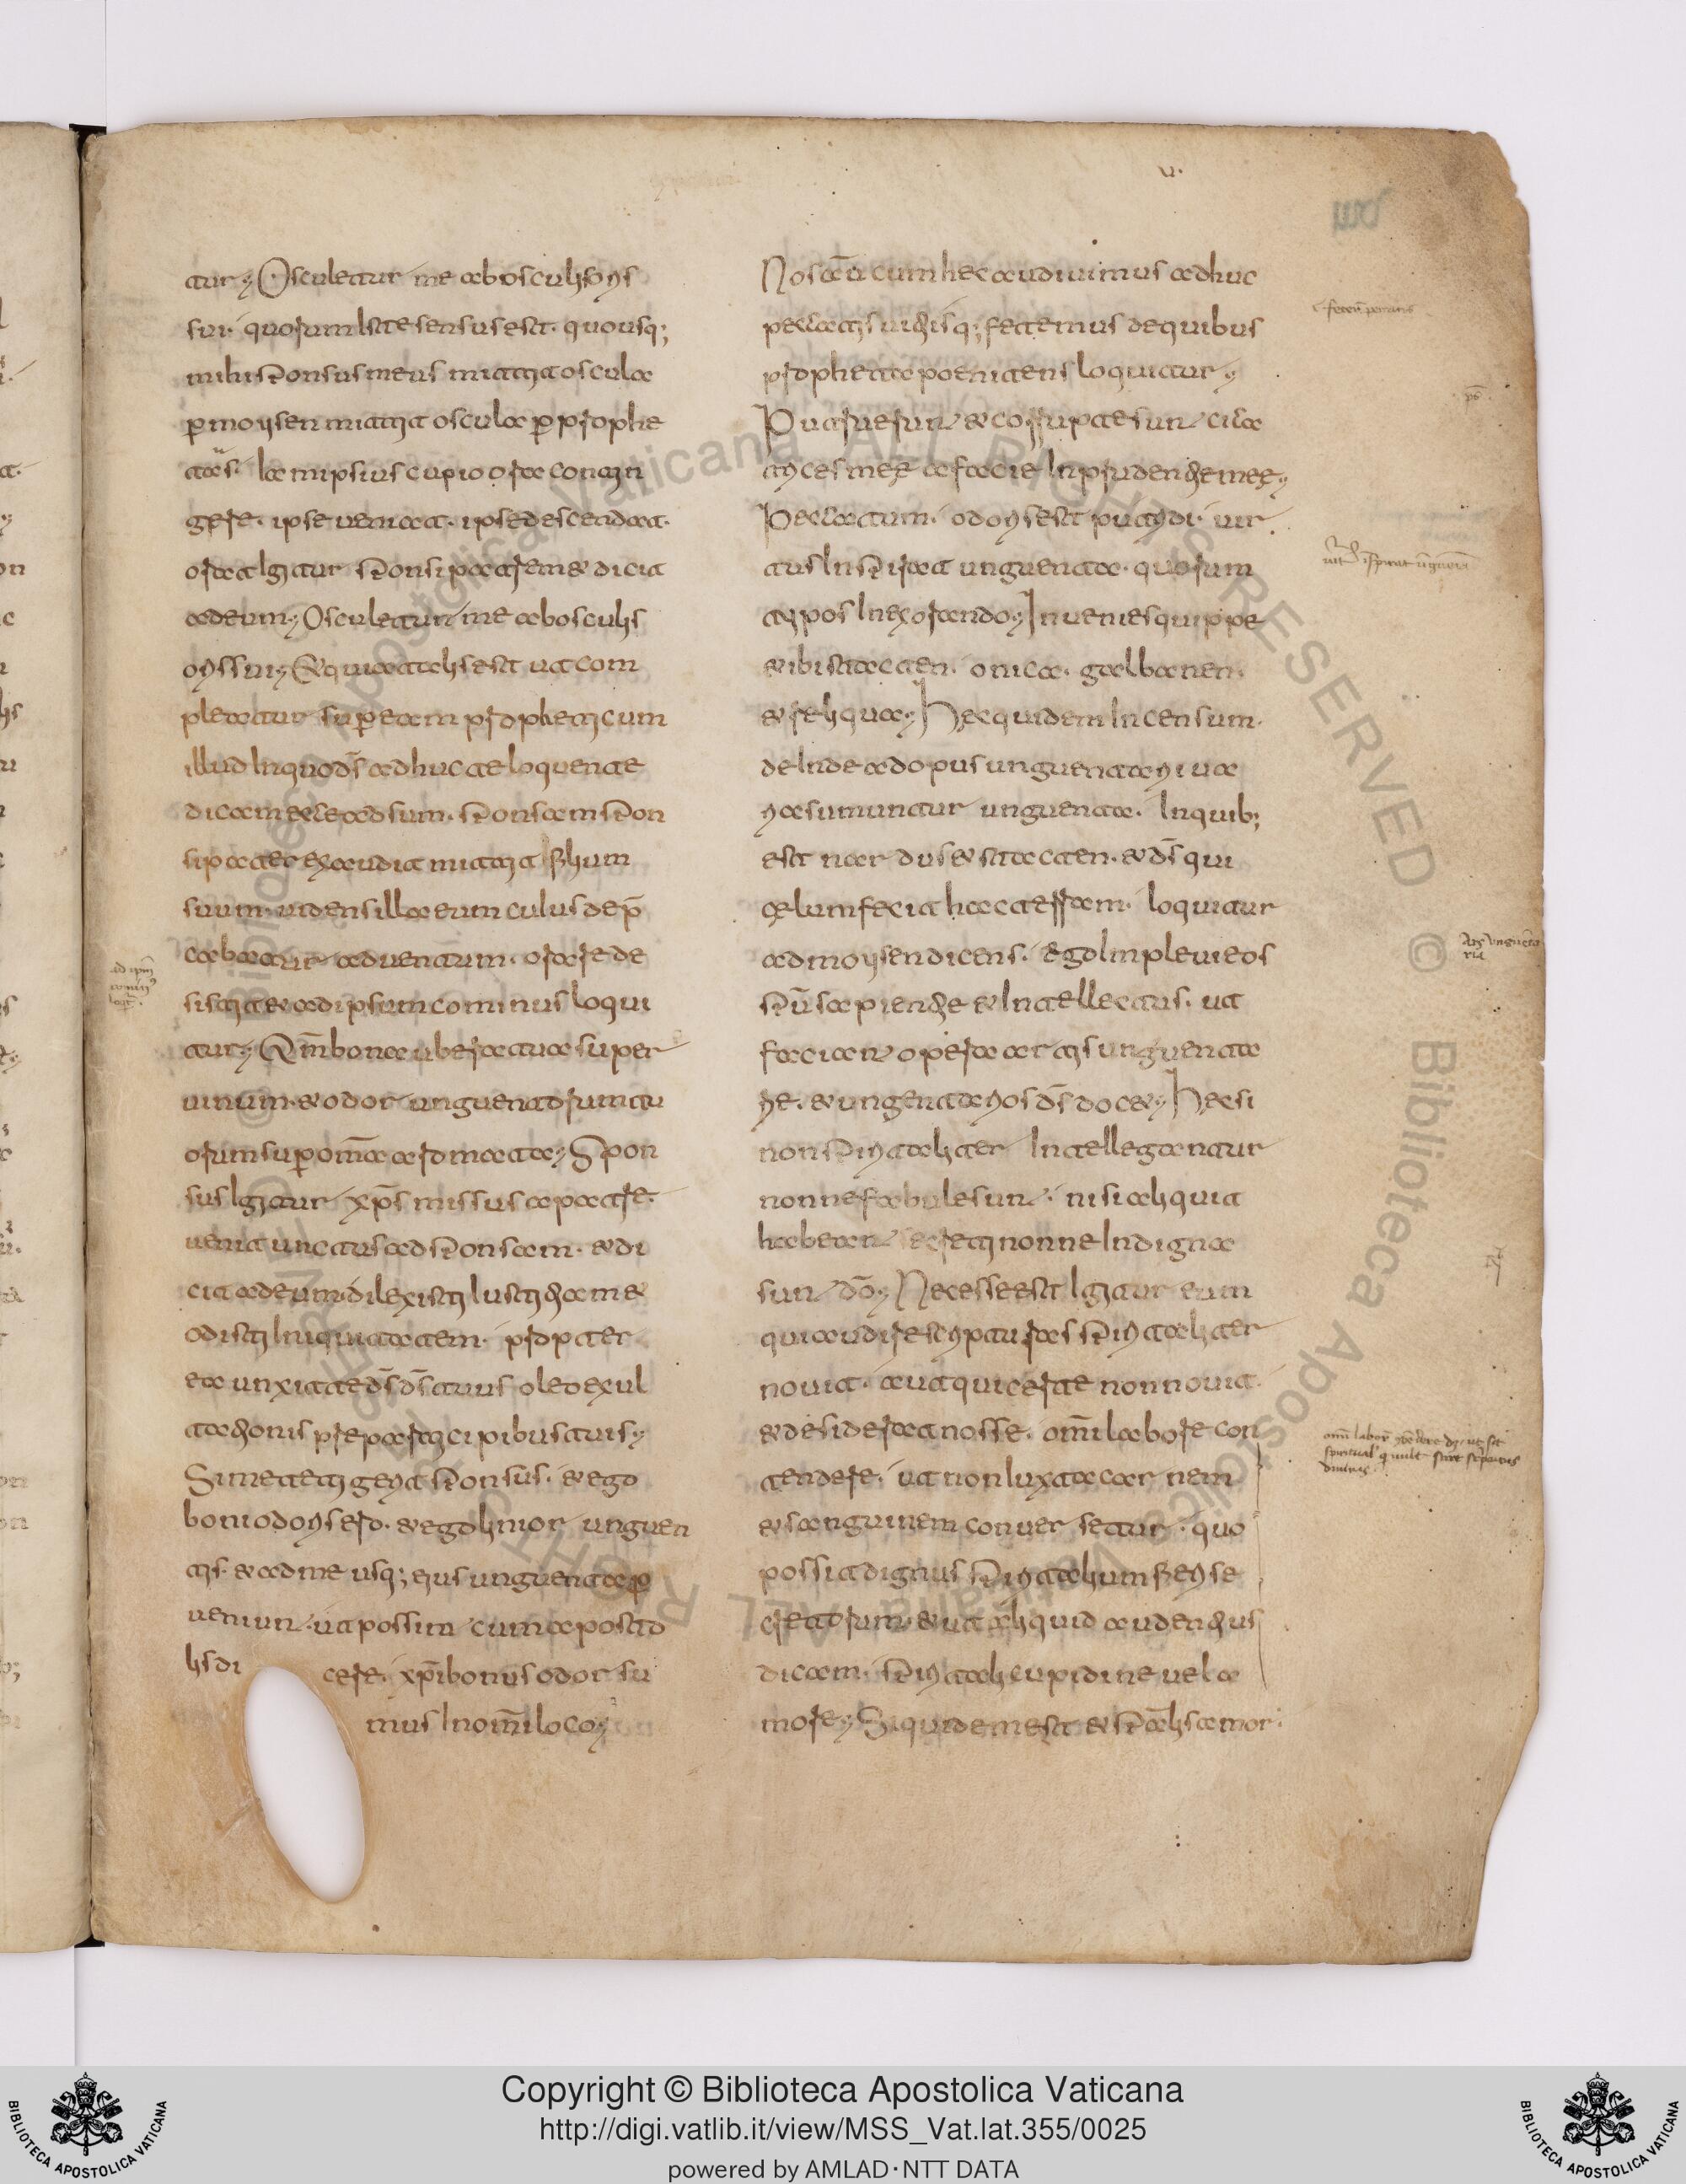 tur; Osculetur me ab osculis oris
sui· quorum iste sensus est· quousq;
mihi sponsus meus mittit oscula
per moysen mittit oscula per prophe
tas· iam ipsius cupio ora contin
gere· ipse veniat· ipse descendat·
orat igitur sponsi patrem & dicit
ad eum; Osculetur me ab osculis
oris sui; Et quia talis est ut com
pleatur super eam propheticum
illud in quo ds̄ adhuc te loquente
dicam ecce adsum· sponsam spon
si pater exaudit mittit filium
suum· videns illa eum cuius dep̄
cabatur adventum· orare de
sistit & ad ipsum cominus loqui
tur; Qm̄ bona ubera tua super
vinum· & odor unguentorum tu
orum super om̄a aromata; Spon
sus igitur xp̄s missus a patre·
venit unctus ad sponsam· & di
cit ad eum· dilexisti iustitiam &
odisti iniquitatem· propter
ea unxit te ds̄ ds̄ tuus oleo exul
tationis pre participibus tuis;
Si me tetigerit sponsus· & ego
boni odoris ero· & ego linior unguen
tis· & ad me usq; eius unguenta p
veniunt· ut possim cum aposto
lis di cere· xp̄i bonus odor su
mus in om̄i loco;
u·
Nos aū cum hec audivimus adhuc
peccatis vitiisq; fetemus de quibus
propheta poenitens loquitur;
Putruerunt & corrupte sunt cica
trices mee a facie insipientie mee;
Peccatum· odoris est putridi· vir
tus in spirat unguenta· quorum
typos in exorando; Invenies quippe
& ibi stacten· onica· galbanen·
& reliqua; Hec quidem incensum·
deinde ad opus unguentarii va
ria sumuntur unguenta· In quib;
est nardus & stacten· & ds̄ qui
celum fecit hac terram· loquitur
ad moysen dicens· ego implevi eos
sp̄ū sapientie & intellectus· ut
faciant opera artis unguenta
rie· & unguentarios ds̄ docet; Hec si
non spiritaliter intellegantur
nonne fabule sunt· nisi aliquid
habeant secreti nonne indigna
sunt dō; Necesse est igitur eum
qui audire scripturas spiritaliter
novit· aut qui certe non novit
& desiderat nosse· om̄i labore con
tendere· ut non iuxta carnem
& sanguinem conversetur· quo
possit dignus spiritalium fieri se
cretorum· & ut aliquid audentius
dicam· spiritali cupidine vel a
more; Siquidem est & spiritalis amor·
Copyright © Biblioteca Apostolica Vaticana
http://digi.vatlib.it/view/MSS_Vat.lat.355/0025
powered by AMLAD·NTT DATA
BIBLIOTECA APOSTOLICA VATICANA
BIBLIOTECA APOSTOLICA VATICANA